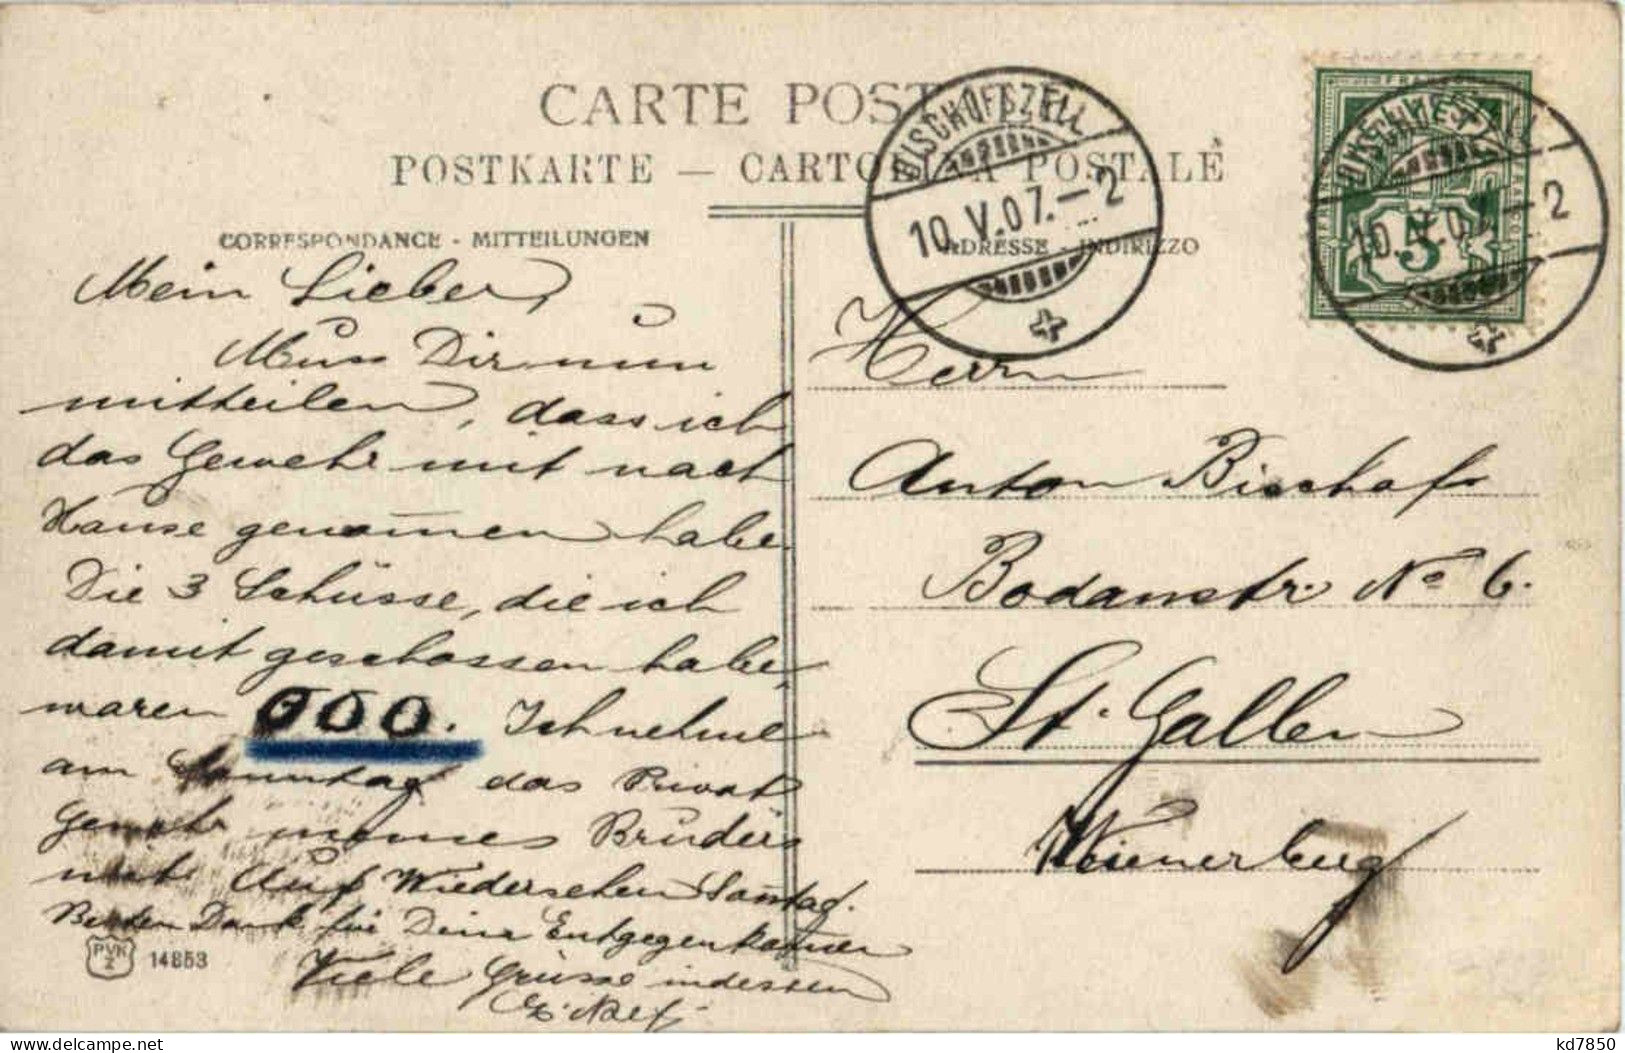 CARTE POSTALE
POSTKARTE — CARTOLINA POSTALE
CORRESPONDANCE - MITTEILUNGEN
ADRESSE - INDIRIZZO
BISCHOFSZELL
10.V.07.–2
BISCHOFSZELL
10.V.07.–2
FRANCO
5
Mein Lieber,
Muss Dir nun
mitteilen, dass ich
das Gewehr mit nach
Hause genom̄en habe.
Die 3 Schüsse, die ich
damit geschossen habe,
waren 000. Ich nehme
am Sonntag das Privat
Gewehr meines Bruders
mit. Auf Wiedersehen Son̄tag.
Besten Dank für Deine Entgegenkom̄en
Viele Grüsse indessen
E. Naef
PVKZ 14853
Herrn
Anton Bischof
Bodanstr. No 6.
St. Gallen
Wienerberg
kd7850